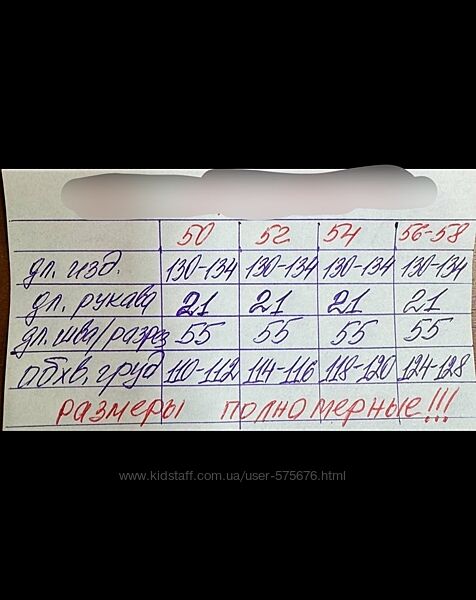 50 52 54 56-58
дл. изд. 130-134 130-134 130-134 130-134
дл. рукава 21 21 21 21
дл. шва/разрез 55 55 55 55
обхв. груд 110-112 114-116 118-120 124-128
размеры полномерные!!!
www.kidstaff.com.ua/user-575676.html